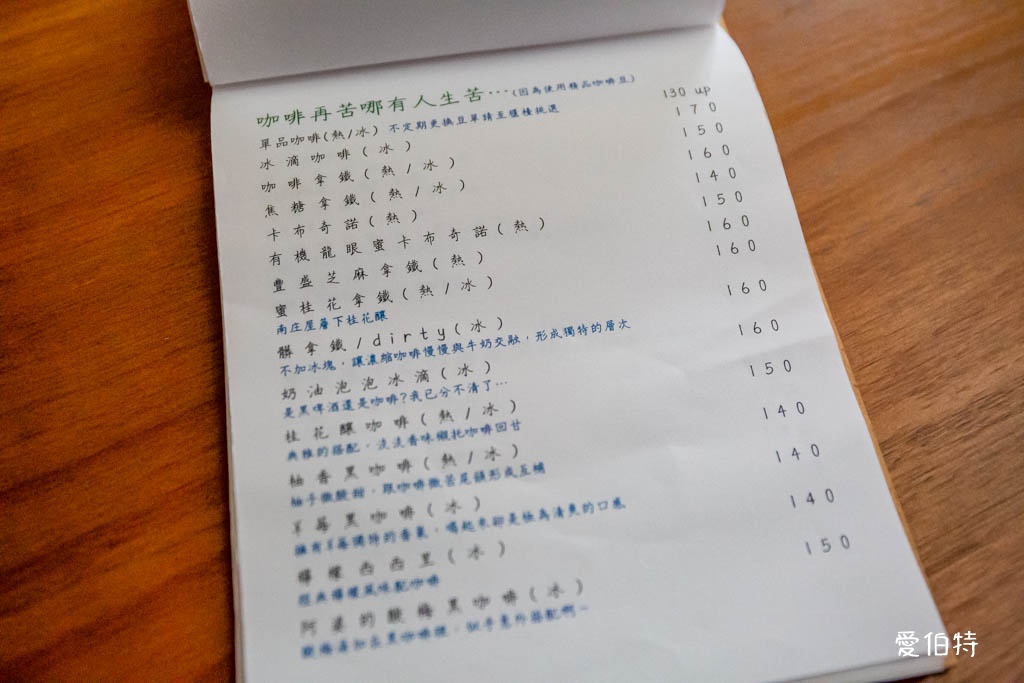 咖啡再苦哪有人生苦…(因為使用精品咖啡豆)
單品咖啡(熱/冰) 不定期更換豆單請至櫃檯挑選 130 up
冰滴咖啡(冰) 170
咖啡拿鐵(熱/冰) 150
焦糖拿鐵(熱/冰) 160
卡布奇諾(熱) 140
有機龍眼蜜卡布奇諾(熱) 150
豐盛芝麻拿鐵(熱) 160
蜜桂花拿鐵(熱/冰) 160
南庄屋簷下桂花釀
髒拿鐵/dirty(冰) 160
不加冰塊，讓濃縮咖啡慢慢與牛奶交融，形成獨特的層次
奶油泡泡冰滴(冰) 160
是黑啤酒還是咖啡?我已分不清了…
桂花釀咖啡(熱/冰) 150
典雅的搭配，淡淡香味襯托咖啡回甘
柚香黑咖啡(熱/冰) 140
柚子微酸甜，跟咖啡微苦尾韻形成互補
莓黑咖啡(冰) 140
擁有莓獨特的香氣，喝起來卻是極為清爽的口感
檸檬西西里(冰) 140
經典檸檬風味配咖啡
阿婆的酸梅黑咖啡(冰) 150
酸梅湯加在黑咖啡裡，似乎意外搭配啊~
愛伯特